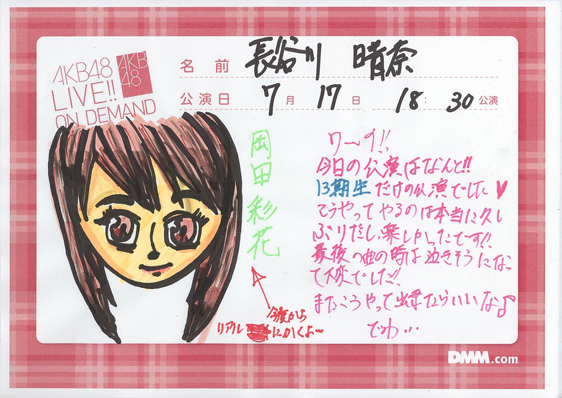 AKB48
LIVE!!
ON DEMAND
AKB
48
名前 長谷川 晴奈
公演日 7月 17日 18:30公演
岡田彩花
わーす!!
今日の公演はなんと!!
13期生だけの公演でした♥
こうやってやるのは本当に久し
ぶりだし、楽しかったです!!
最後の曲の時は泣きそうになっ
て大変でした!!
またこうやって出来たらいいな♪
でわ…
今度から
リアルにかくよ〜
DMM.com